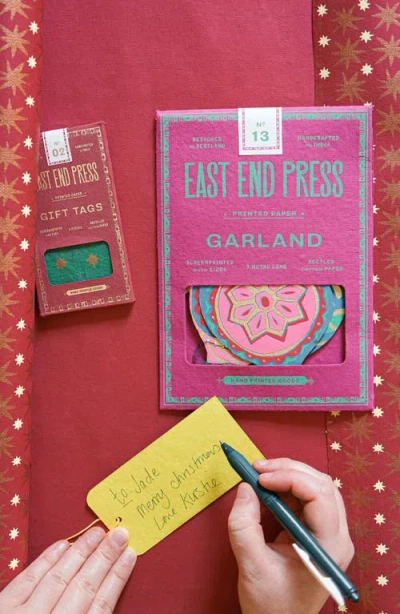 Nº
02
EAST END PRESS
PRINTED PAPER
GIFT TAGS
Nº
13
DESIGNED
IN SCOTLAND
HANDCRAFTED
IN INDIA
EAST END PRESS
PRINTED PAPER
GARLAND
SCREENPRINTED
WITH GLUE
3 METRE LONG
RECYCLED
COTTON PAPER
HAND PRINTED GOODS
to Jade
merry christmas
love Kirstie